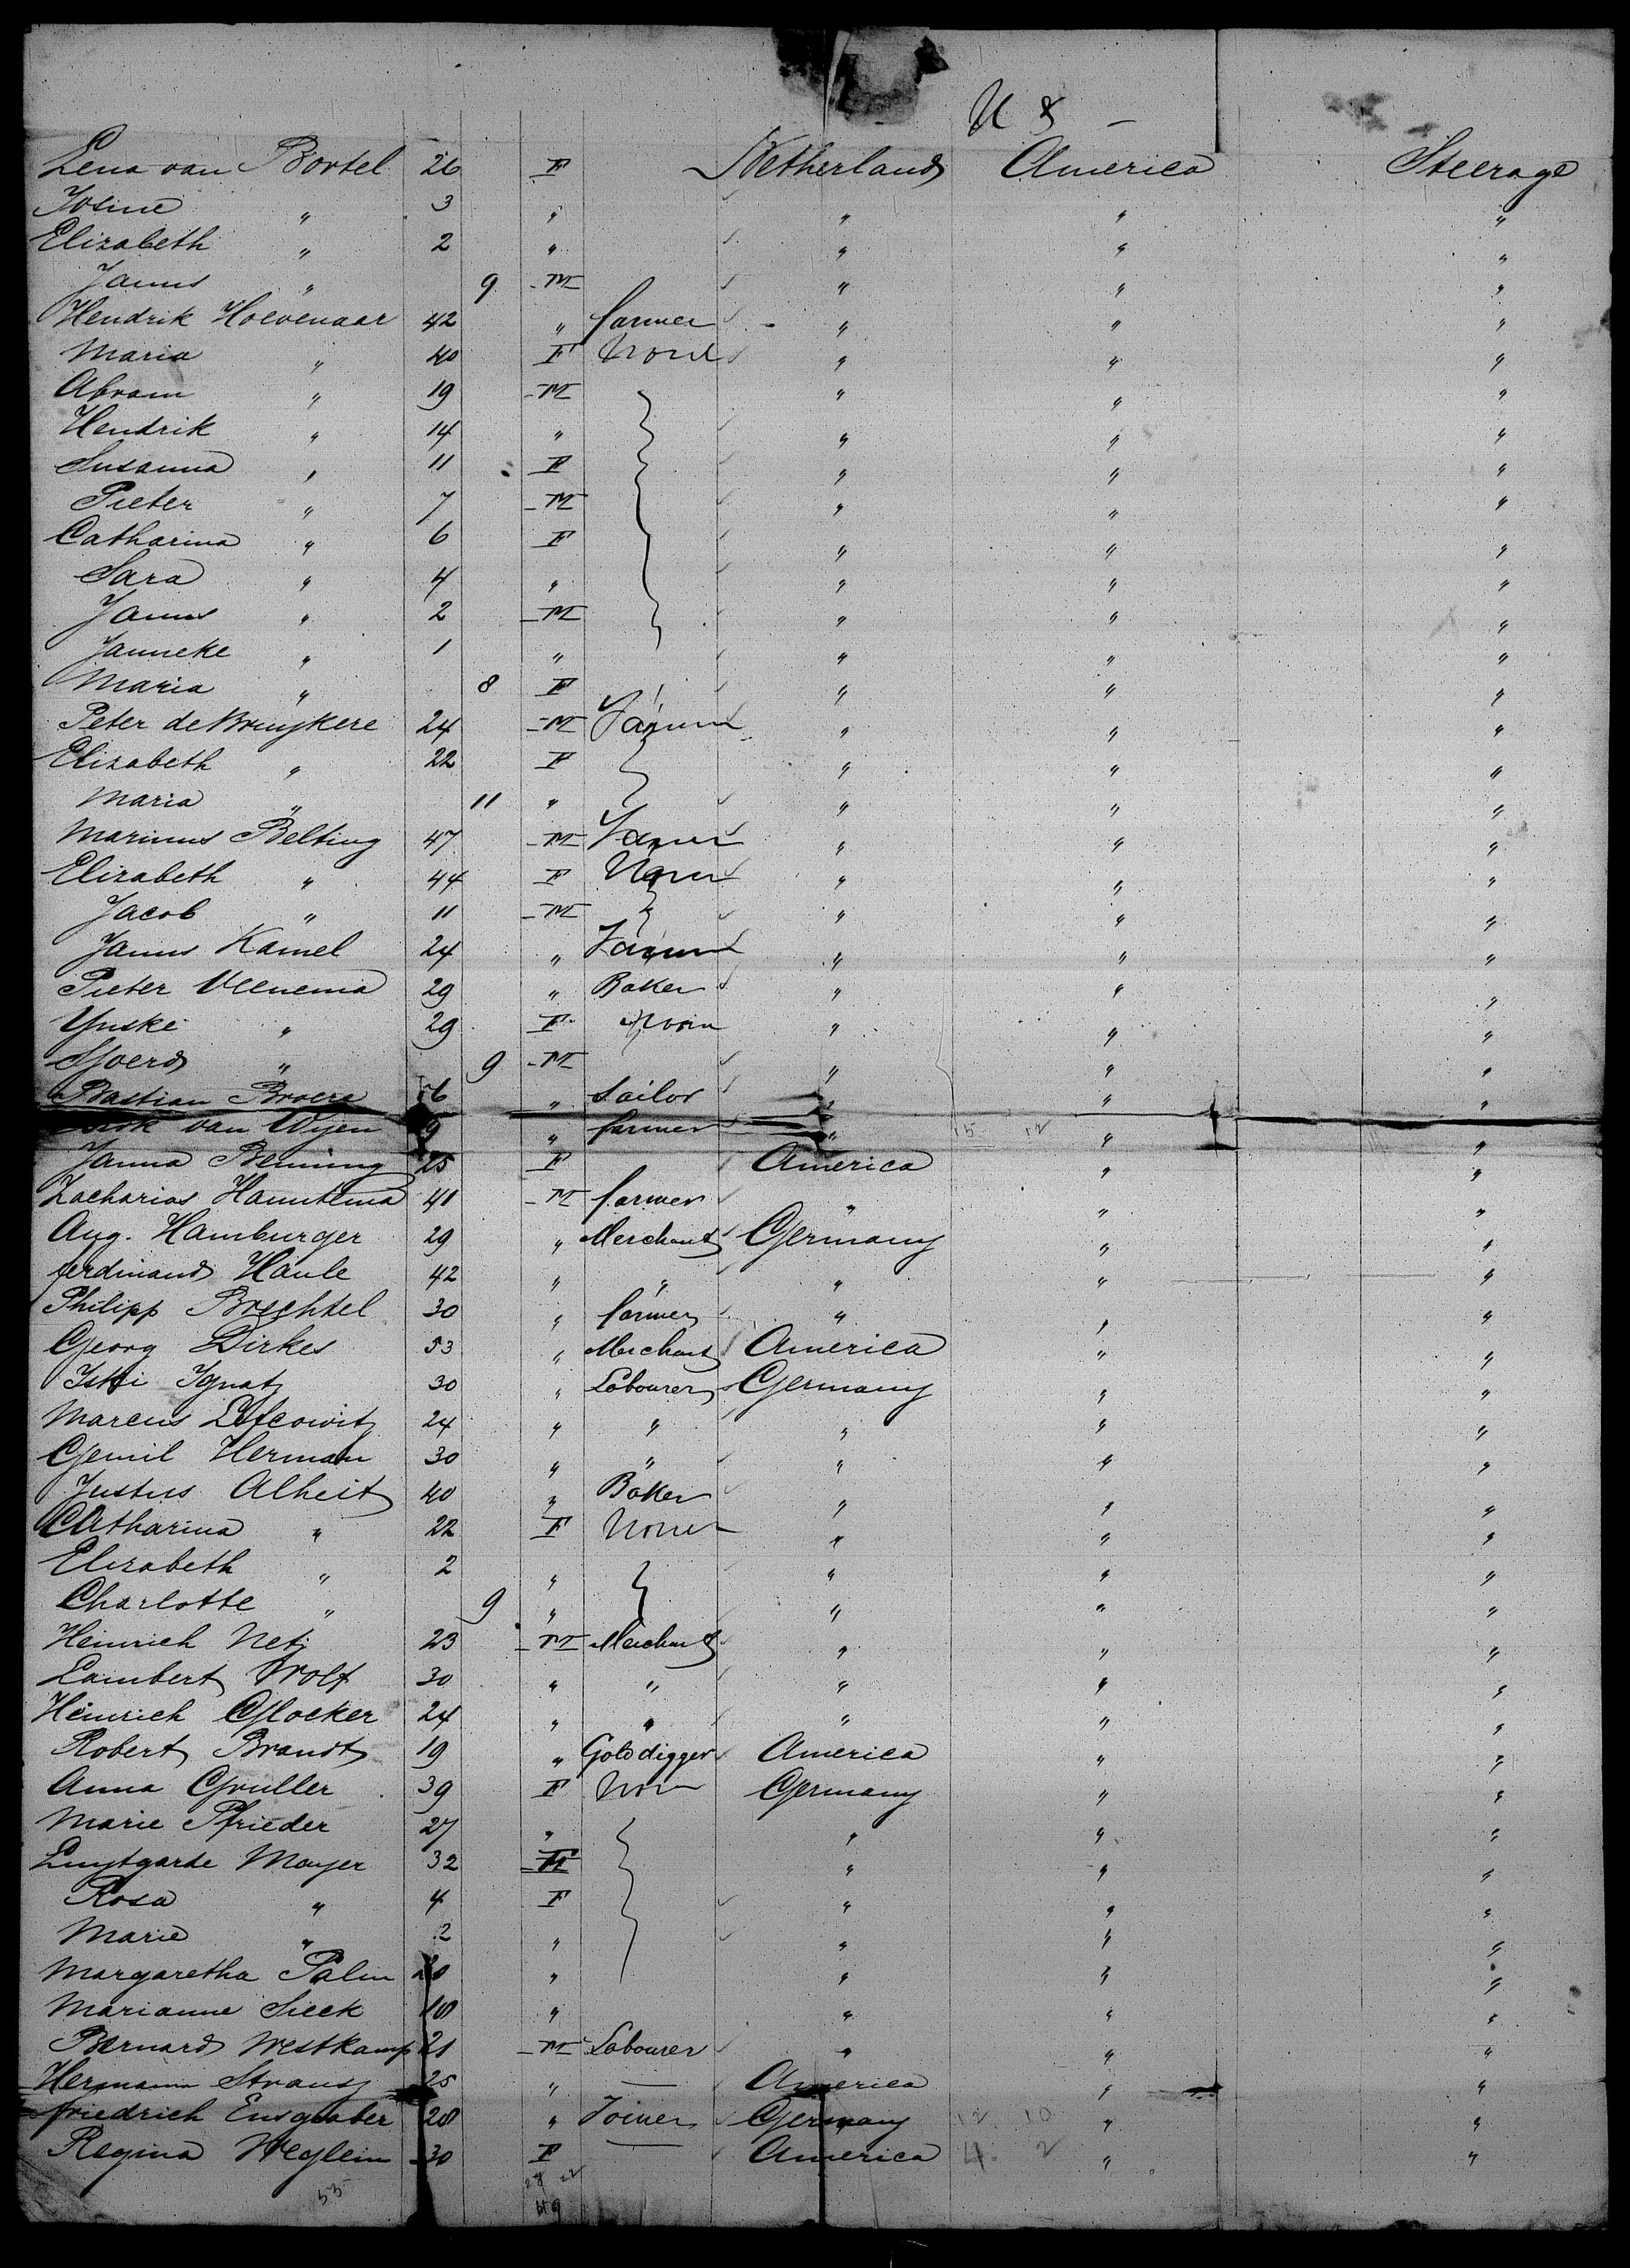 U S -
Lena van Bortel 26 F Netherlands America Steerage
Josine " 3 " " " "
Elizabeth " 2 " " " "
Janus " 9 M " " "
Hendrik Hoevenaar 42 " farmer " " "
Maria " 40 F None " " "
Abram " 19 M " " "
Hendrik " 14 " " " "
Susanna " 11 F " " "
Pieter " 7 M " " "
Catharina " 6 F " " "
Sara " 4 " " " "
Janus " 2 M " " "
Janneke " 1 " " " "
Maria " 8 F " " "
Peter de Bruykere 24 M " " "
Elizabeth " 22 F " " "
Maria " 11 " " " "
Marinus Belting 47 M " " "
Elizabeth " 44 F None " " "
Jacob " 11 M " " "
Janus Kamel 24 " " " "
Pieter Veenema 29 " Baker " " "
Ynske " 29 F None " " "
Sjoerd " 9 M " " "
Bastian Broere 6 " Sailor " " "
van Wyen 9 " farmer " " "
Janna Benning 25 F America " "
Zacharias Hamtema 41 M farmer " " "
Aug. Hamburger 29 " Merchant Germany " "
ferdinand Haule 42 " " " " "
Philipp Brechtel 30 " farmer " " "
Georg Dirkes 53 " Merchant America " "
Ignatz 30 " Labourer Germany " "
Marcus Lefcowitz 24 " " " " "
Gemil Herman 30 " " " " "
Justus Alheit 40 " Baker " " "
Catharina " 22 F None " " "
Elizabeth " 2 " " " "
Charlotte " 9 " " " "
Heinrich Netz 23 M Merchant " " "
Lambert Wolf 30 " " " " "
Heinrich Glocker 24 " " " " "
Robert Brandt 19 " Golddigger America " "
Anna Gruller 39 F Non Germany " "
Marie Pfrieder 27 " " " "
Luytgarde Mayer 32 F " " "
Rosa " 4 F " " "
Marie " 2 " " " "
Margaretha Palm 20 " " " "
Marianne Sieck 18 " " " "
Bernard Westkamp 21 M Labourer " " "
Hermann Strauss 25 " — America " "
friedrich Ensgraber 28 " Joiner Germany 12 10 " "
Regina Weglein 30 F — America 4. 2 " "
53